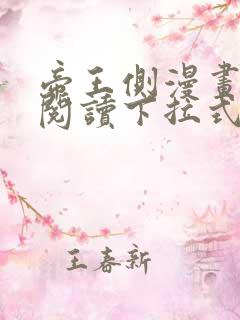 帝王側漫畫
閱讀下拉式
王春新